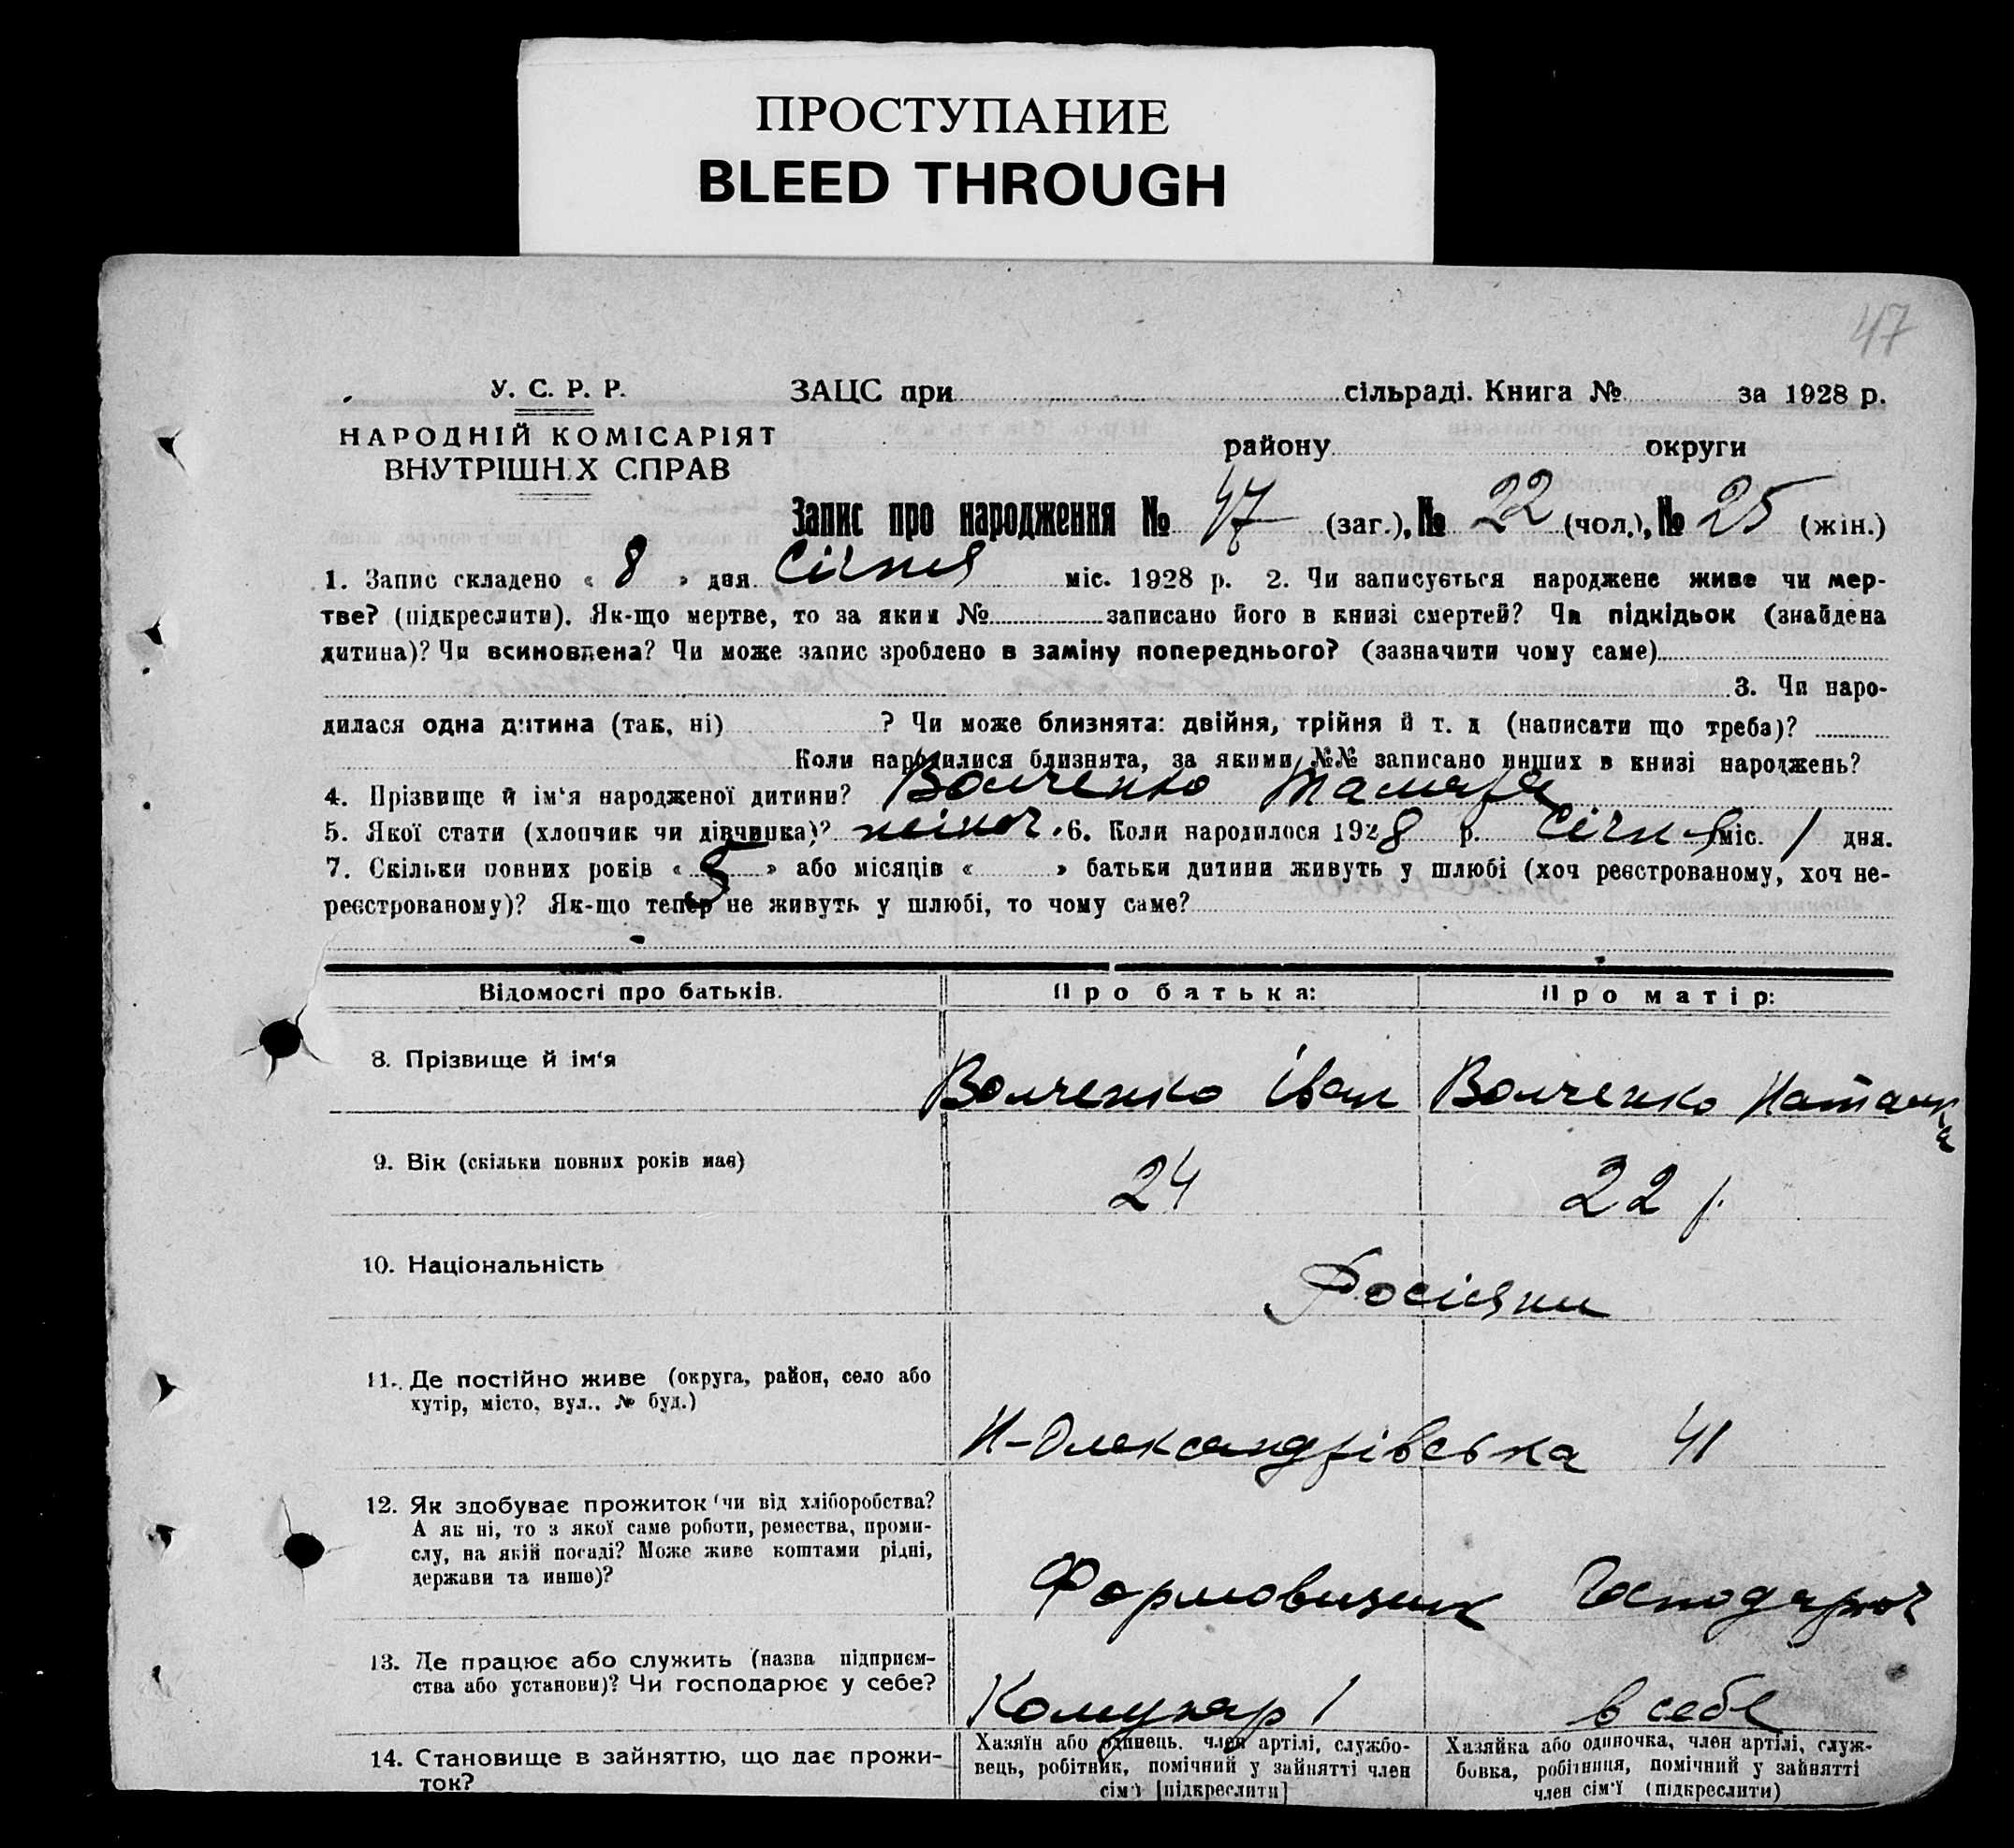 ПРОСТУПАНИЕ
BLEED THROUGH
47
У. С. Р. Р.
НАРОДНІЙ КОМІСАРІЯТ
ВНУТРІШН.Х СПРАВ
ЗАЦС при сільраді. Книга № за 1928 р.
району округи
Запис про народження № 47 (заг.), № 22 (чол.), № 25 (жін.)
1. Запис складено « 8 » дня Січня міс. 1928 р. 2. Чи записується народжене живе чи мер-
тве? (підкреслити). Як-що мертве, то за яким № записано його в книзі смертей? Чи підкідьок (знайдена
дитина)? Чи всиновлена? Чи може запис зроблено в заміну попереднього? (зазначити чому саме)
3. Чи наро-
дилася одна дитина (так, ні) ? Чи може близнята: двійня, трійня й т. д (написати що треба)?
Коли народилися близнята, за якими №№ записано инших в книзі народжень?
4. Прізвище й ім‘я народженої дитини? Волченко Тамара
5. Якої стати (хлопчик чи дівчинка)? жіноч. 6. Коли народилося 1928 р. Січня міс. 1 дня.
7. Скільки повних років « 5 » або місяців « » батьки дитини живуть у шлюбі (хоч реєстрованому, хоч не-
реєстрованому)? Як-що тепер не живуть у шлюбі, то чому саме?
Відомості про батьків. Про батька: Про матір:
8. Прізвище й ім‘я Волченко Іван Волченко Наталка
9. Вік (скільки повних років має) 24 22 р.
10. Національність Росіяни
11. Де постійно живе (округа, район, село або
хутір, місто, вул., № буд.)
Н-Олександрівська 41
12. Як здобуває прожиток (чи від хліборобства?
А як ні, то з якої саме роботи, ремества, проми-
слу, на якій посаді? Може живе коштами рідні,
держави та инше)?
Формовщик Господароч
13. Де працює або служить (назва підприєм-
ства або установи)? Чи господарює у себе?
Комунар 1 в себе
14. Становище в зайняттю, що дає прожи-
ток?
Хазяїн або одинець, член артілі, службо-
вець, робітник, помічний у зайнятті член
сім‘ї [підкреслити]
Хазяйка або одиночка, член артілі, служ-
бовка, робітниця, помічний у зайнятті
член сім‘ї (підкреслити)